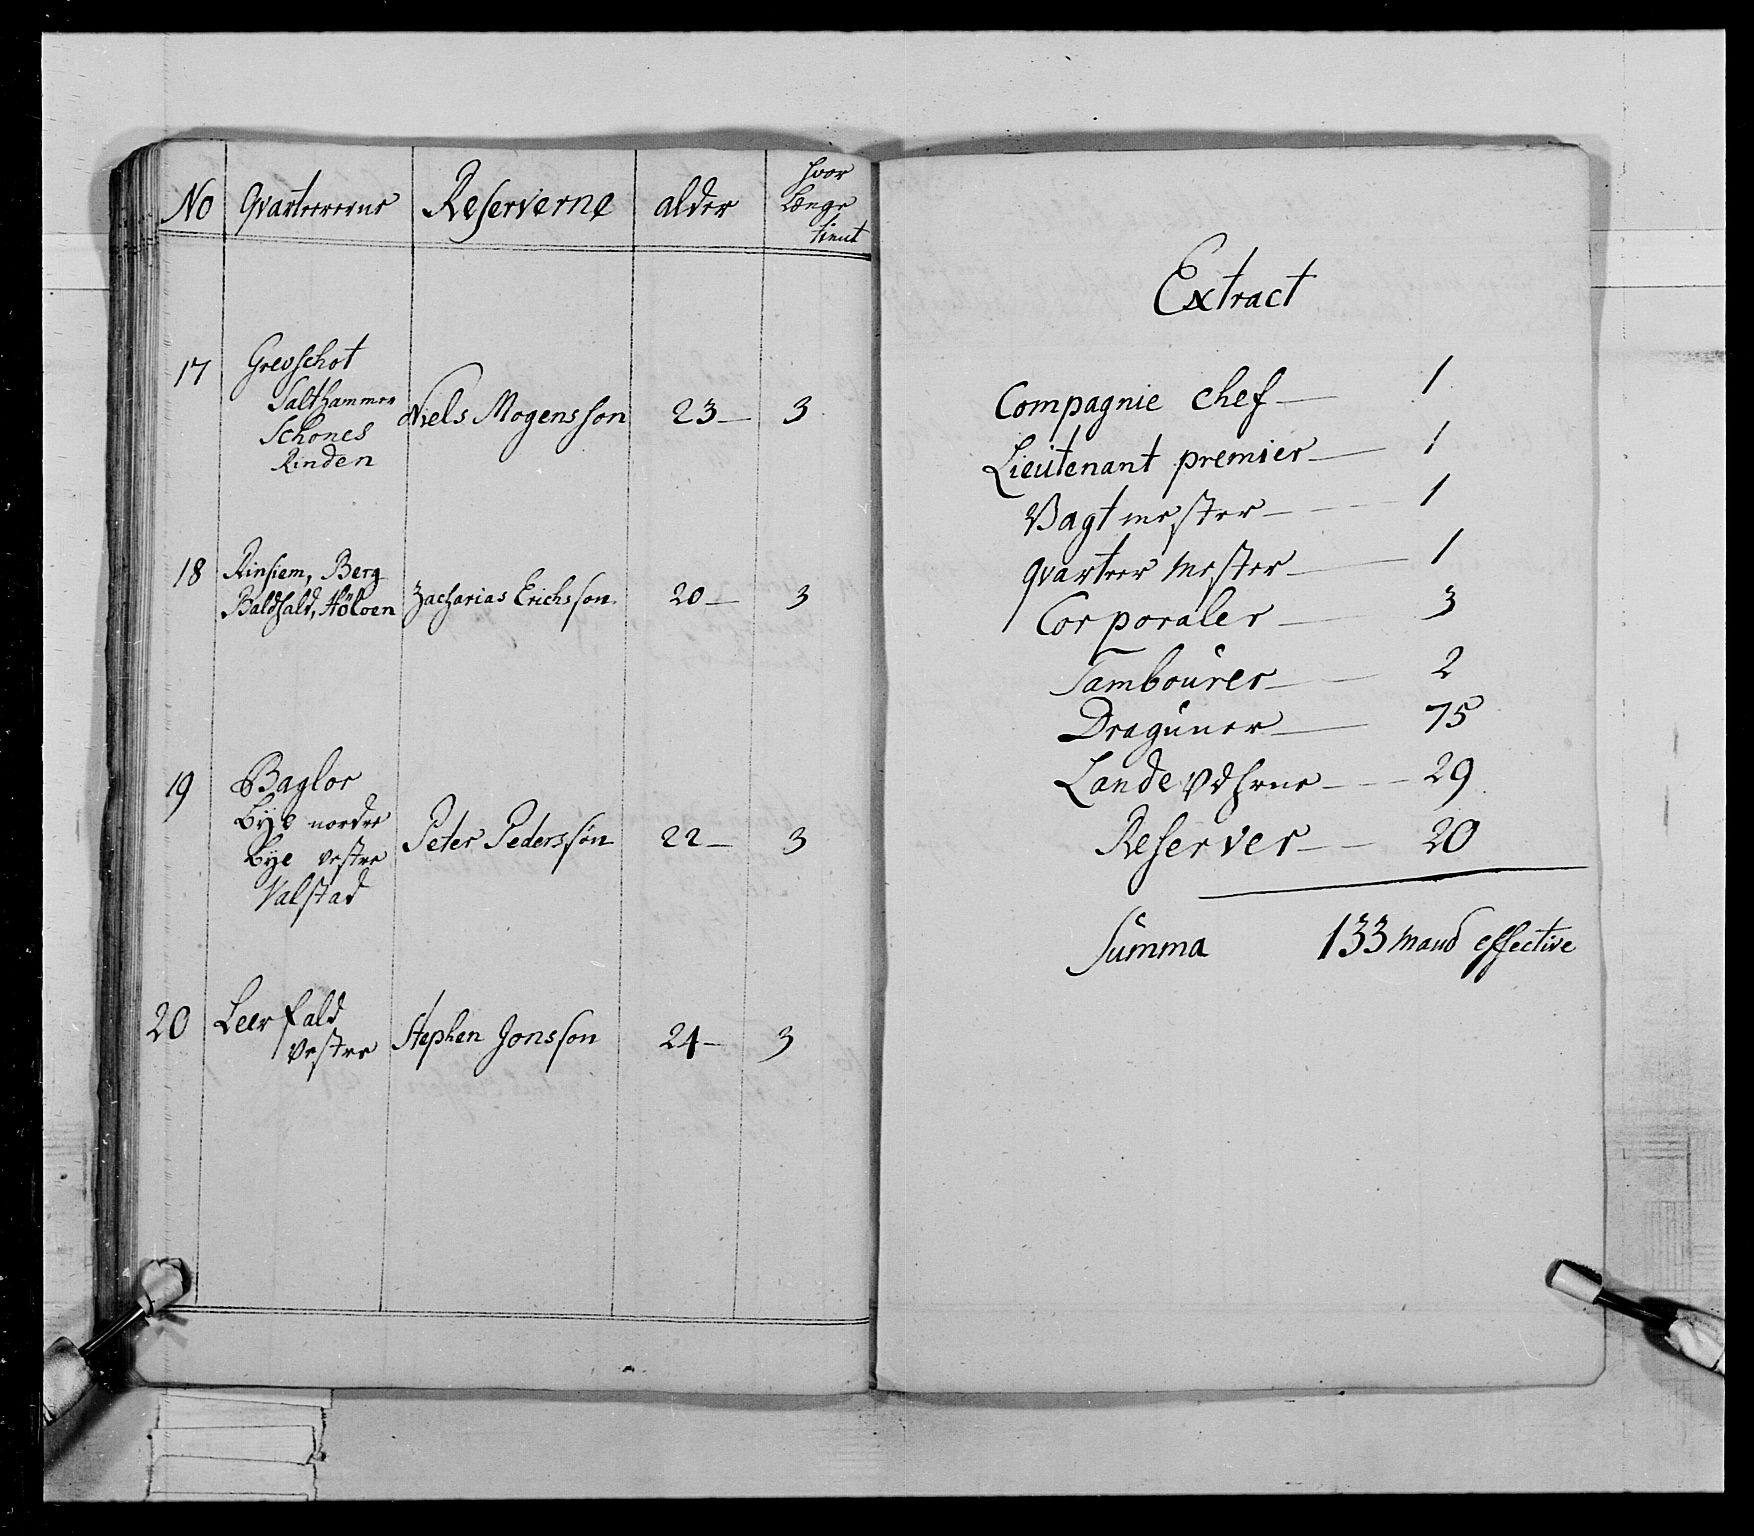 No Qvarteererne Reserverne alder hvor
Længe
tient
17 Grevschot
Salthammer
Schones
Rinden
Niels Mogensson 23 — 3
18 Rinsiem, Berg
Baldhald, Hölven
Zacharias Erichsson 20 — 3
19 Baglor
Bÿe nordre
Bÿe vestre
Valstad
Peter Pederssøn 22 — 3
20 Leerfald
vestre
Stephen Jonsson 24 — 3
Extract
Compagnie chef — 1
Lieutenant premier — 1
Vagtmester — 1
qvarteer mester — 1
Corporaler — 3
Tambourer — 2
Draguner — 75
Lande — 29
Reserver — 20
Summa 133 mand effective